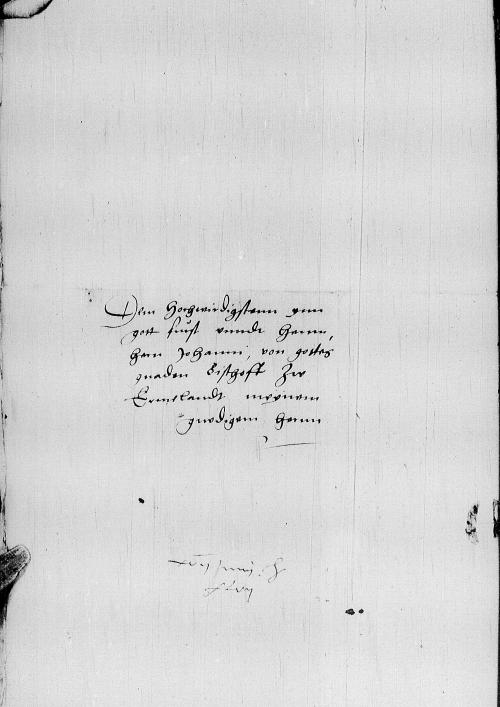 Dem Hochwirdigstenn ynn
gott furst unndt Hernn,
hern Johanni, von gottes
gnaden Bischoff Zw
Ermelandt meynem
gnedigem hernn